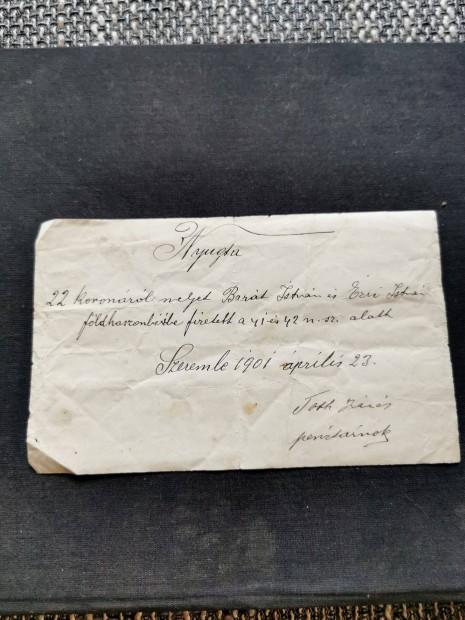 Nyugta
22 koronáról melyet Barát István és Éri István
földhaszonbérbe fizetett a 41 és 42 n. sz. alatt
Szeremle 1901 április 23.
Tóth
pénztárnok